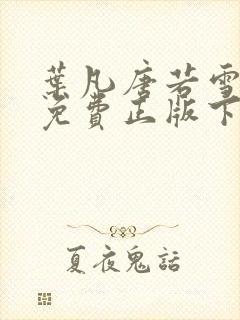 葉凡唐若雪
免費正版下
夏夜鬼話